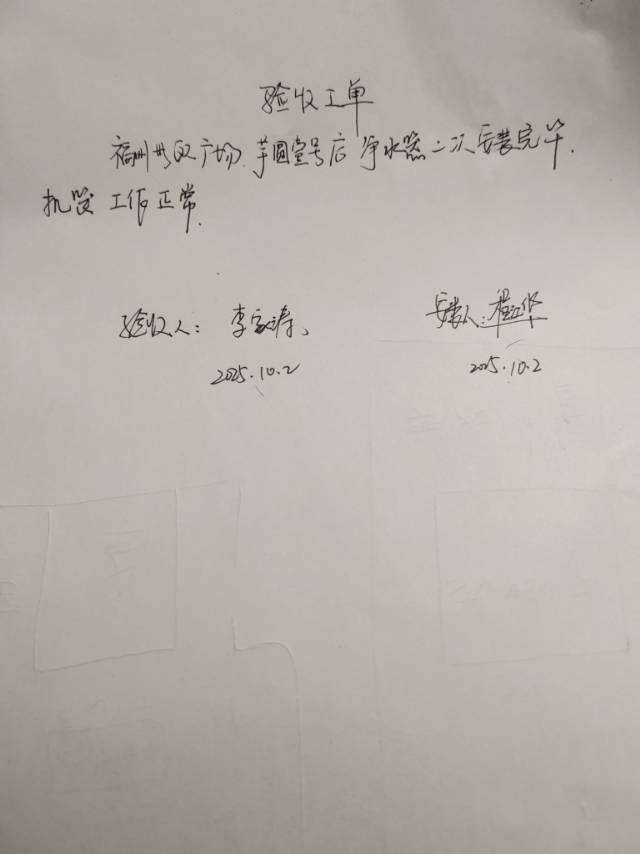 验收工单
福州共区广场 芋圆壹号店 净水器二次安装完毕.
机器工作正常.
验收人: 李家涛 安装人:
2025.10.2 2025.10.2